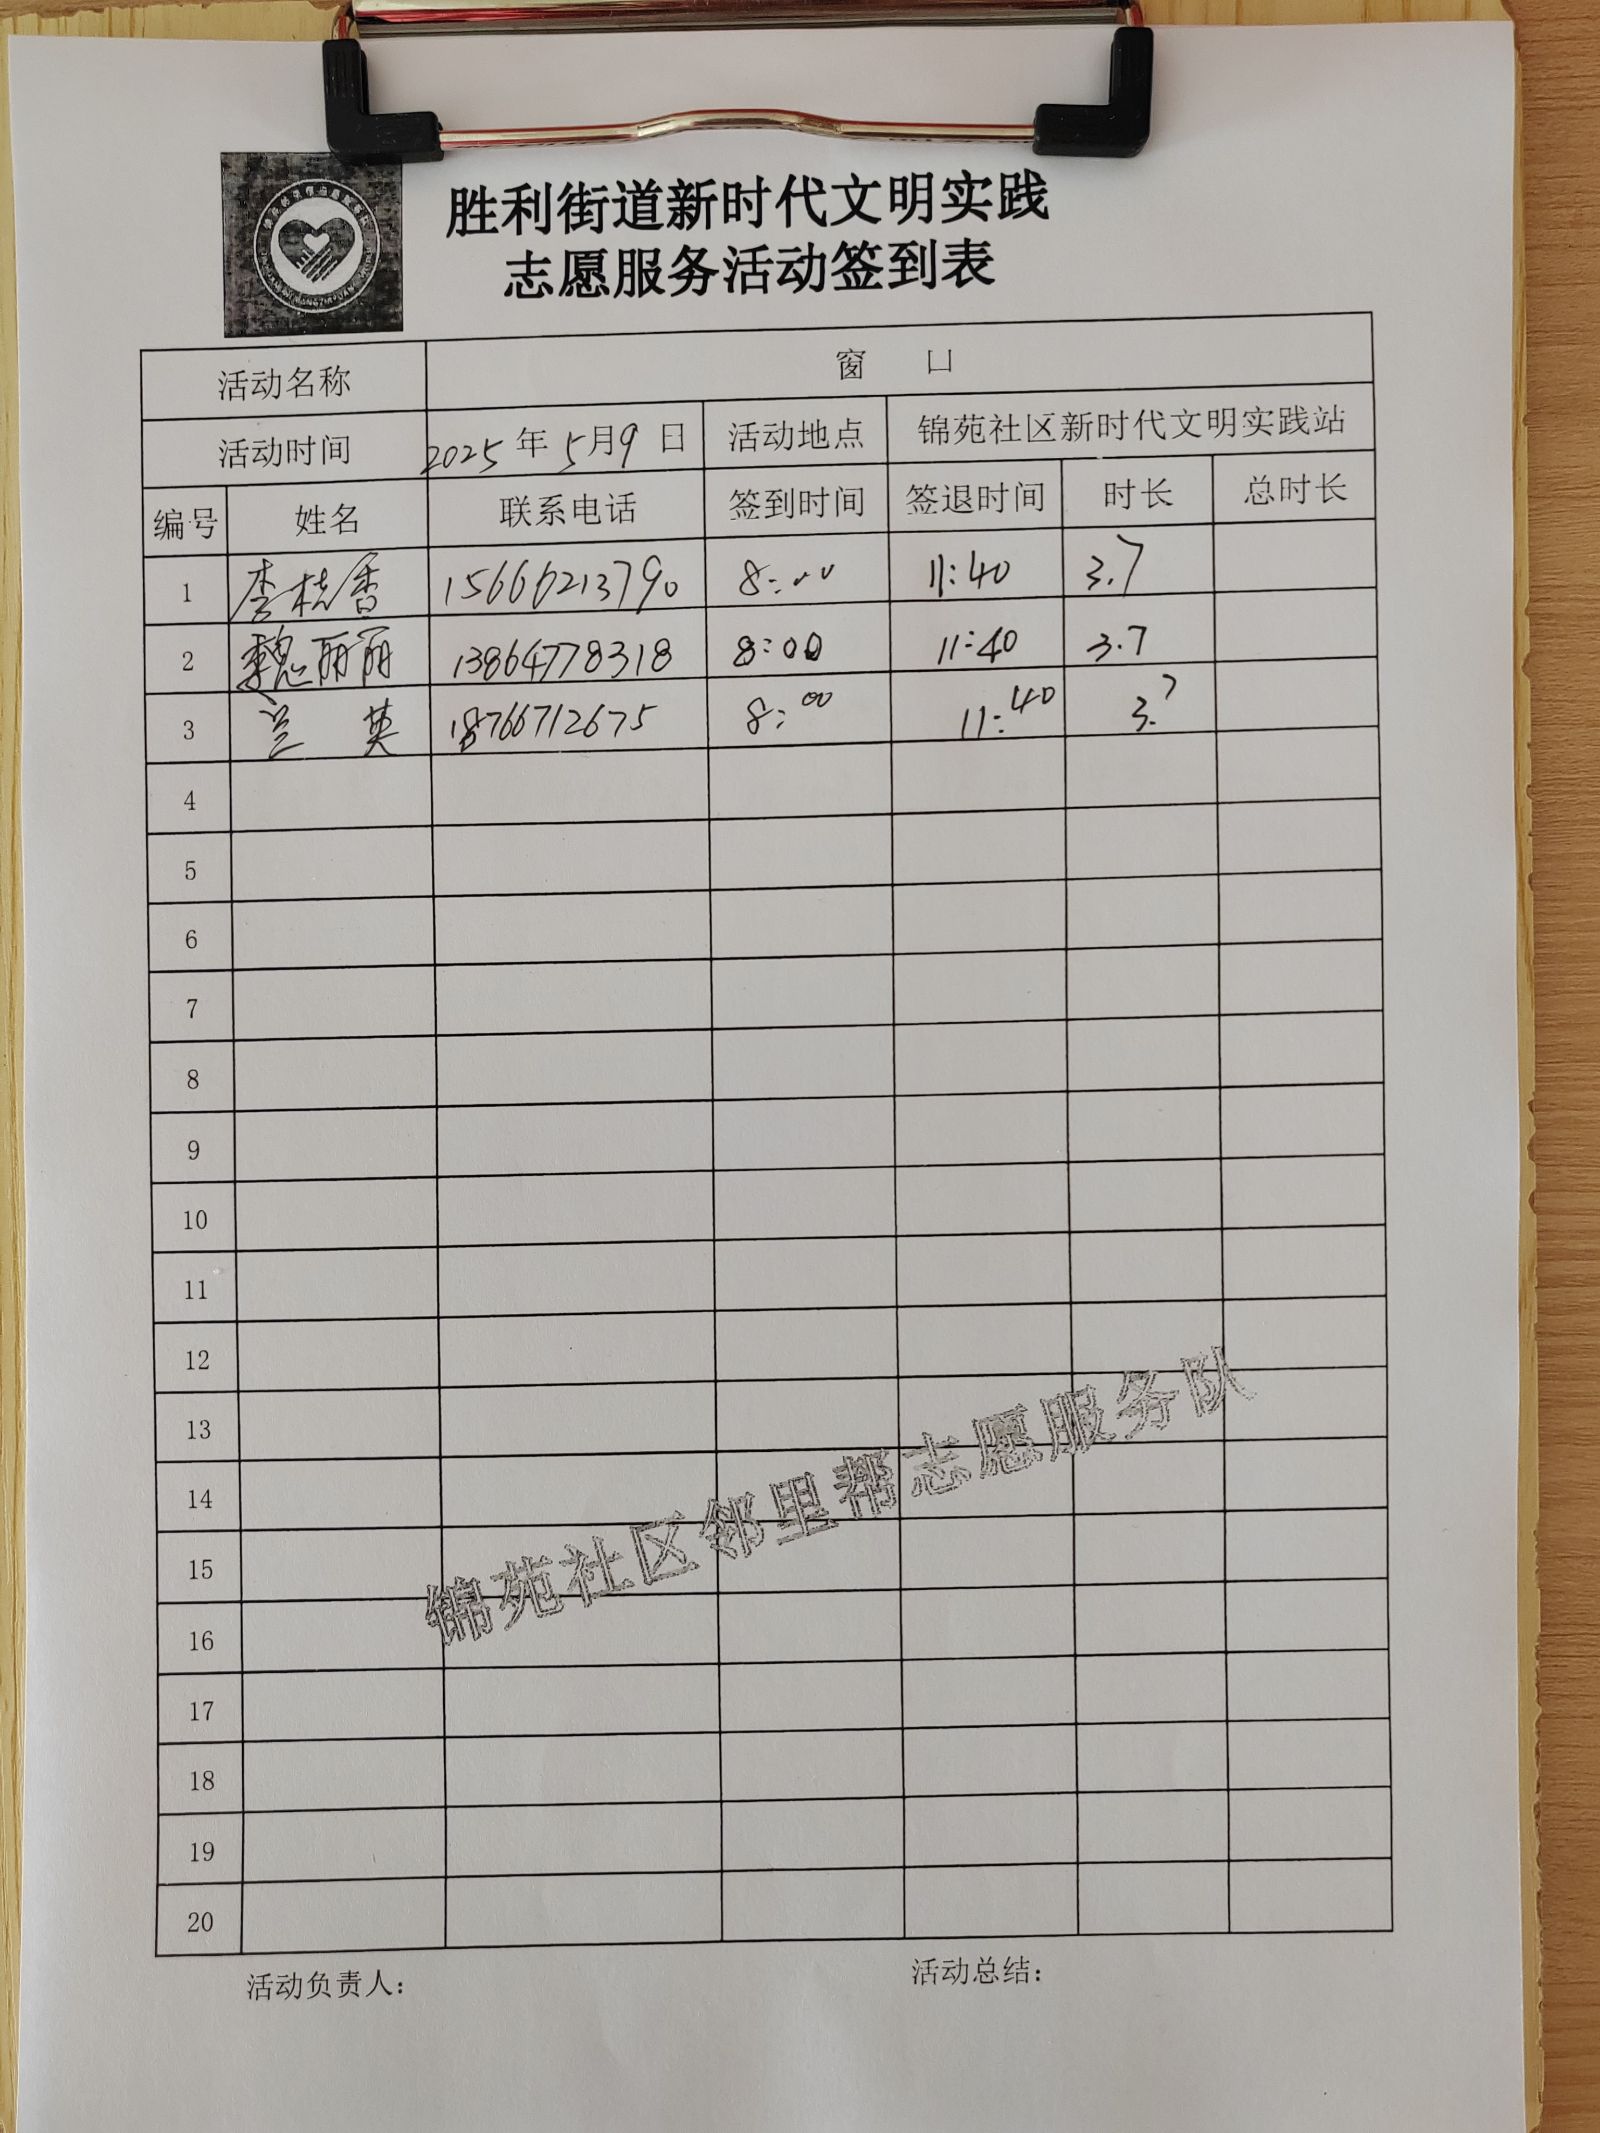 胜利街道新时代文明实践
志愿服务活动签到表
活动名称 窗 口
活动时间 2025年5月9日 活动地点 锦苑社区新时代文明实践站
编号 姓名 联系电话 签到时间 签退时间 时长 总时长
1 李桂香 15666213790 8:00 11:40 3.7
2 魏丽丽 13864778318 8:00 11:40 3.7
3 兰英 18766712675 8:00 11:40 3.7
4
5
6
7
8
9
10
11
12
13
14
15
16
17
18
19
20
锦苑社区邻里帮志愿服务队
活动负责人： 活动总结：